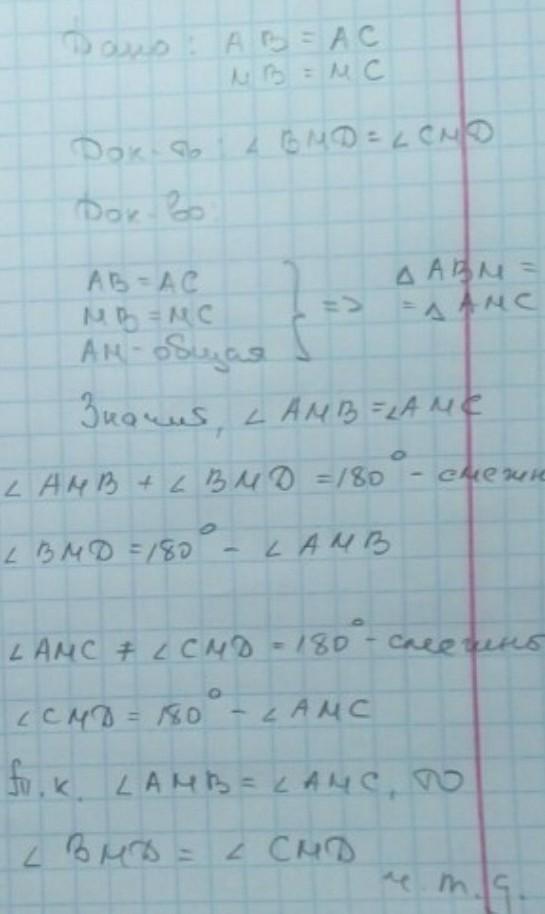 Дано: AB = AC
MB = MC
Док-ть: ∠ BMD = ∠ CMD
Док-во:
AB = AC
MB = MC
AM - общая
} => △ ABM =
= △ AMC
Значит, ∠ AMB = ∠ AMC
∠ AMB + ∠ BMD = 180° - смежн
∠ BMD = 180° - ∠ AMB
∠ AMC + ∠ CMD = 180° - смежны
∠ CMD = 180° - ∠ AMC
т.к. ∠ AMB = ∠ AMC, то
∠ BMD = ∠ CMD
ч.т.д.